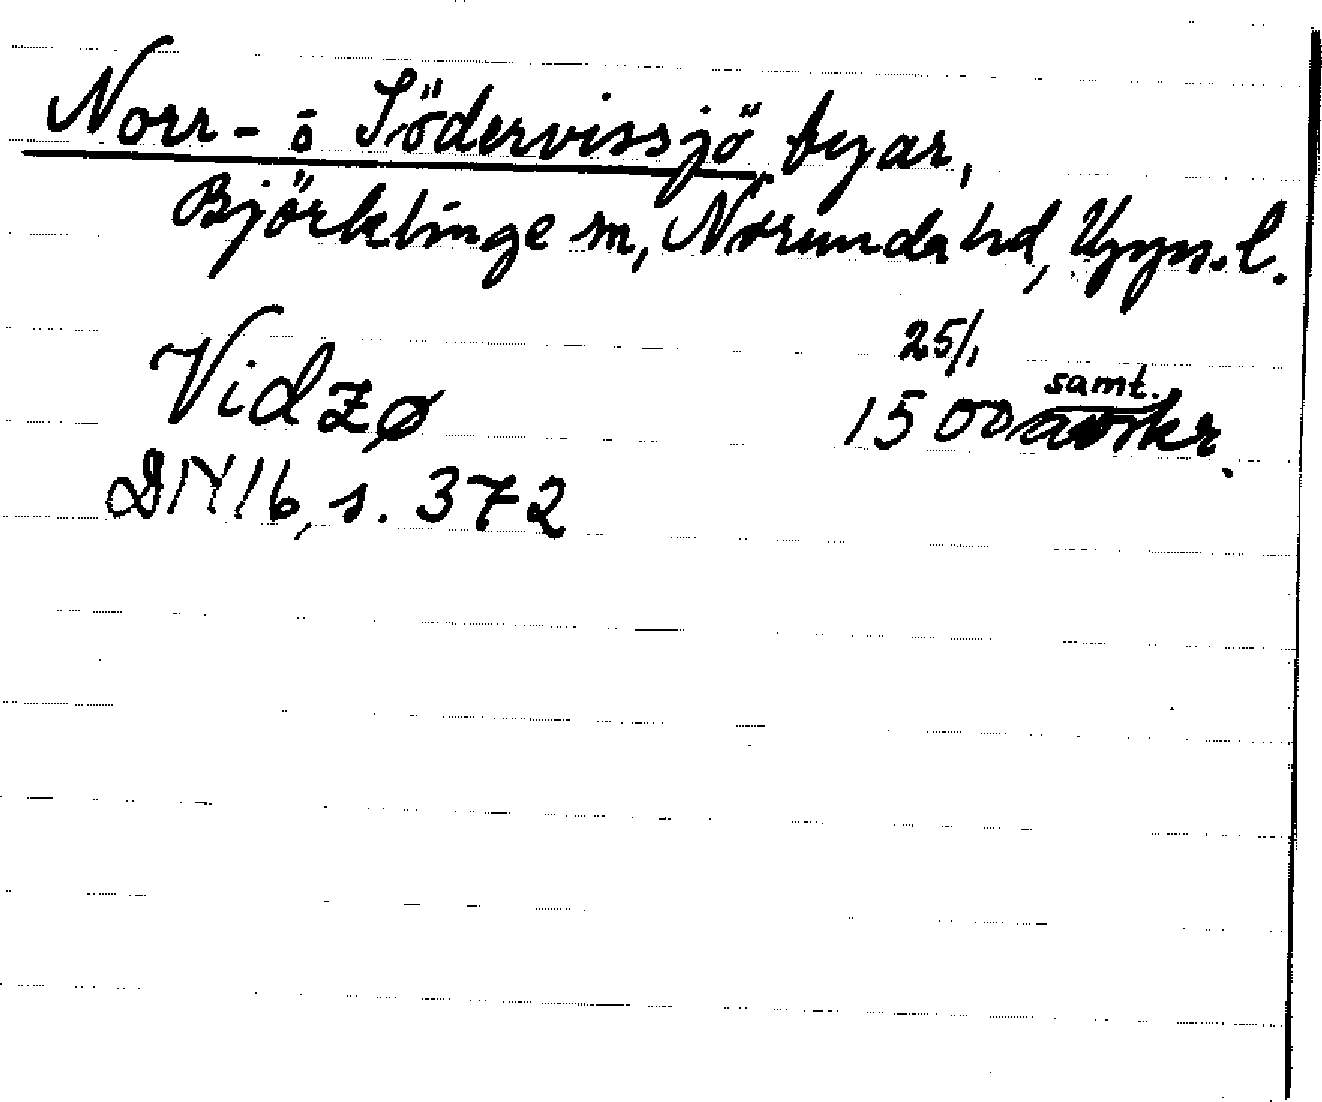 Norr- o Södervissjö byar,
Björklinge sn, Norunda hd, Upps. l.
Vidzø 25/1
1500 samt. avskr.
DN 16, s. 372